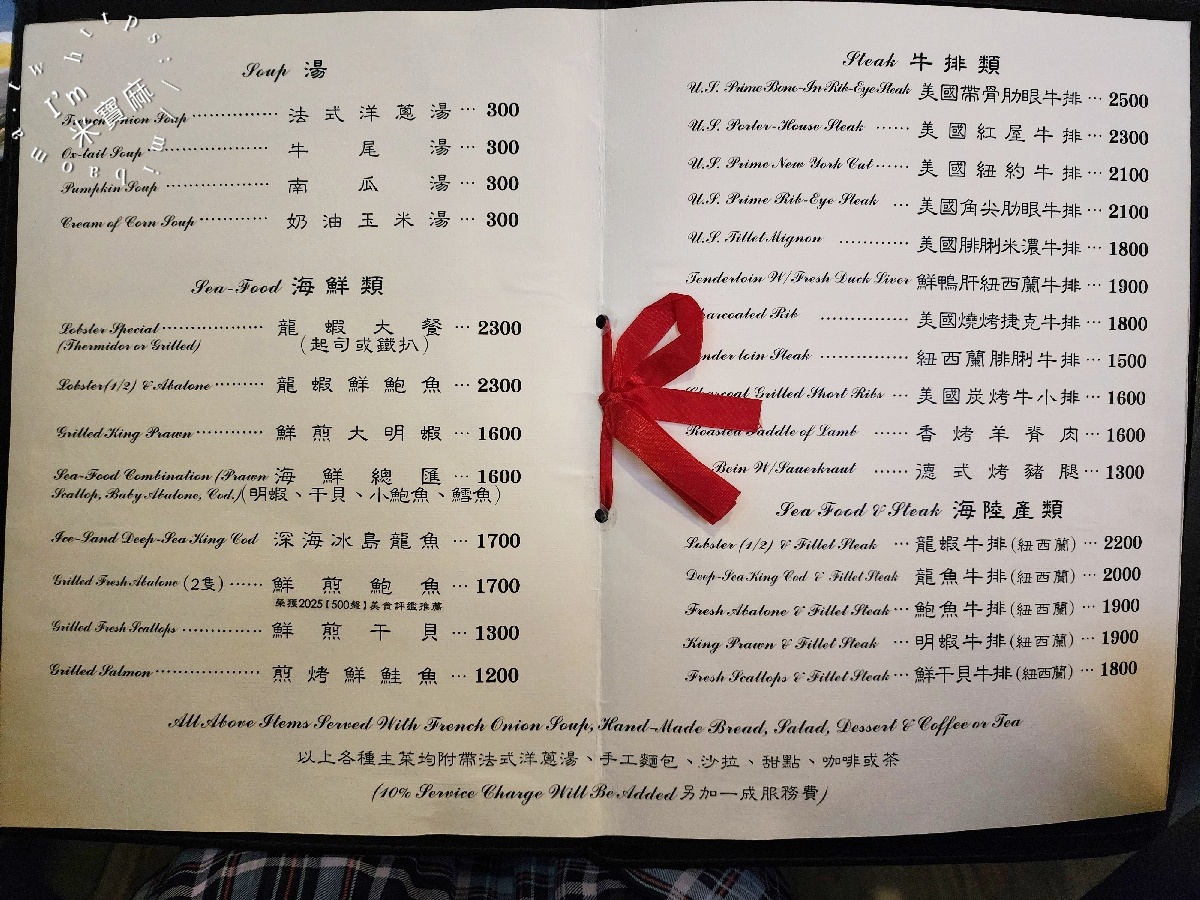 I'm
米寶麻
Soup 湯
French Onion Soup 法式洋蔥湯 ··· 300
Ox-tail Soup 牛尾湯 ··· 300
Pumpkin Soup 南瓜湯 ··· 300
Cream of Corn Soup 奶油玉米湯 ··· 300
Sea-Food 海鮮類
Lobster Special 龍蝦大餐 ··· 2300
(Thermidor or Grilled) (起司或鐵扒)
Lobster (1/2) & Abalone 龍蝦鮮鮑魚 ··· 2300
Grilled King Prawn 鮮煎大明蝦 ··· 1600
Sea-Food Combination (Prawn 海鮮總匯 ··· 1600
Scallop, Baby Abalone, Cod.) (明蝦、干貝、小鮑魚、鱈魚)
Ice-Land Deep-Sea King Cod 深海冰島龍魚 ··· 1700
Grilled Fresh Abalone (2隻) 鮮煎鮑魚 ··· 1700
榮獲2025【500盤】美食評鑑推薦
Grilled Fresh Scallops 鮮煎干貝 ··· 1300
Grilled Salmon 煎烤鮮鮭魚 ··· 1200
Steak 牛排類
U.S. Prime Bone-In Rib-Eye Steak 美國帶骨肋眼牛排 ··· 2500
U.S. Porter-House Steak 美國紅屋牛排 ··· 2300
U.S. Prime New York Cut 美國紐約牛排 ··· 2100
U.S. Prime Rib-Eye Steak 美國角尖肋眼牛排 ··· 2100
U.S. Fillet Mignon 美國腓脷米濃牛排 ··· 1800
Tenderloin W/Fresh Duck Liver 鮮鴨肝紐西蘭牛排 ··· 1900
Rib 美國燒烤捷克牛排 ··· 1800
loin Steak 紐西蘭腓脷牛排 ··· 1500
Charcoal Grilled Short Ribs 美國炭烤牛小排 ··· 1600
Roasted Saddle of Lamb 香烤羊脊肉 ··· 1600
Bein W/Sauerkraut 德式烤豬腿 ··· 1300
Sea Food & Steak 海陸產類
Lobster (1/2) & Fillet Steak 龍蝦牛排(紐西蘭) ··· 2200
Deep-Sea King Cod & Fillet Steak 龍魚牛排(紐西蘭) ··· 2000
Fresh Abalone & Fillet Steak 鮑魚牛排(紐西蘭) ··· 1900
King Prawn & Fillet Steak 明蝦牛排(紐西蘭) ··· 1900
Fresh Scallops & Fillet Steak 鮮干貝牛排(紐西蘭) ··· 1800
All Above Items Served With French Onion Soup, Hand-Made Bread, Salad, Dessert & Coffee or Tea
以上各種主菜均附帶法式洋蔥湯、手工麵包、沙拉、甜點、咖啡或茶
(10% Service Charge Will Be Added 另加一成服務費)